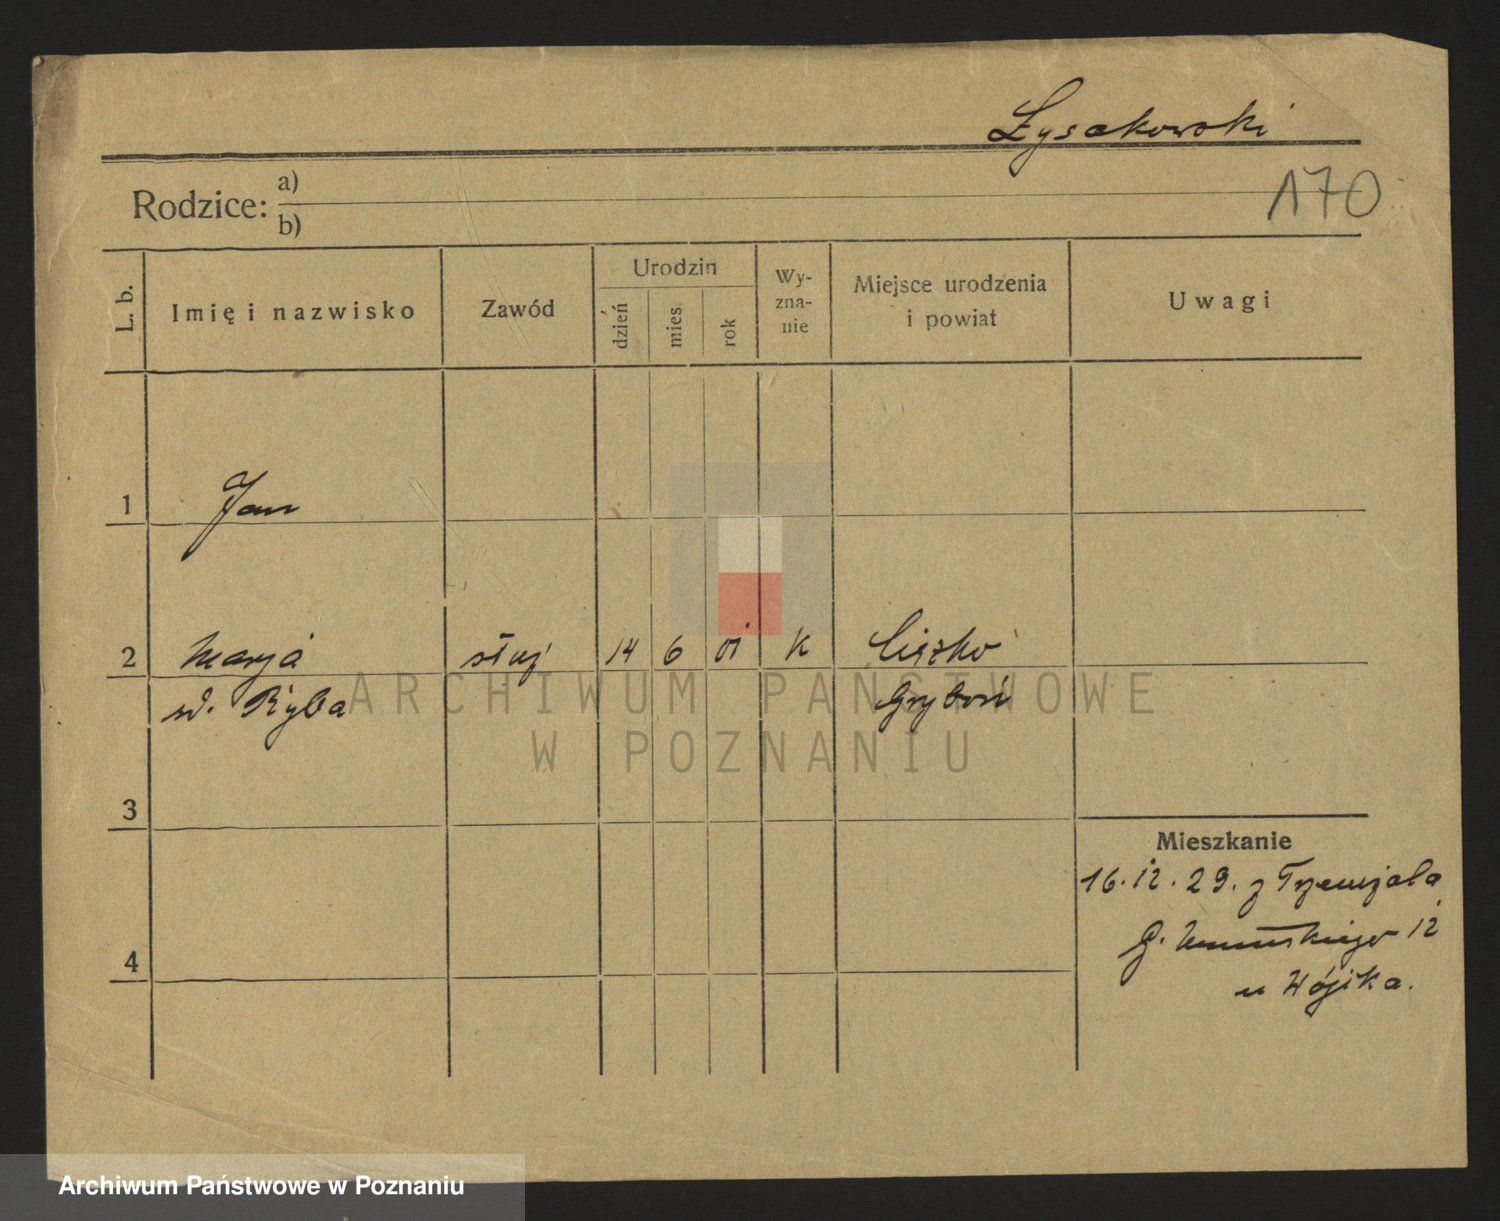 Łysakowski
170
Rodzice: a)
b)
L. b.
Imię i nazwisko
Zawód
Urodzin
dzień
mies
rok
Wy-
zna-
nie
Miejsce urodzenia
i powiat
Uwagi
1
Jan
2
Marja
służ
14
6
01
K
Ciężko
zd. Ryba
Gryboń
ARCHIWUM PAŃSTWOWE
W POZNANIU
3
Mieszkanie
16.12.29. z Trzemżala
G. 12
4
u Wójika.
Archiwum Państwowe w Poznaniu